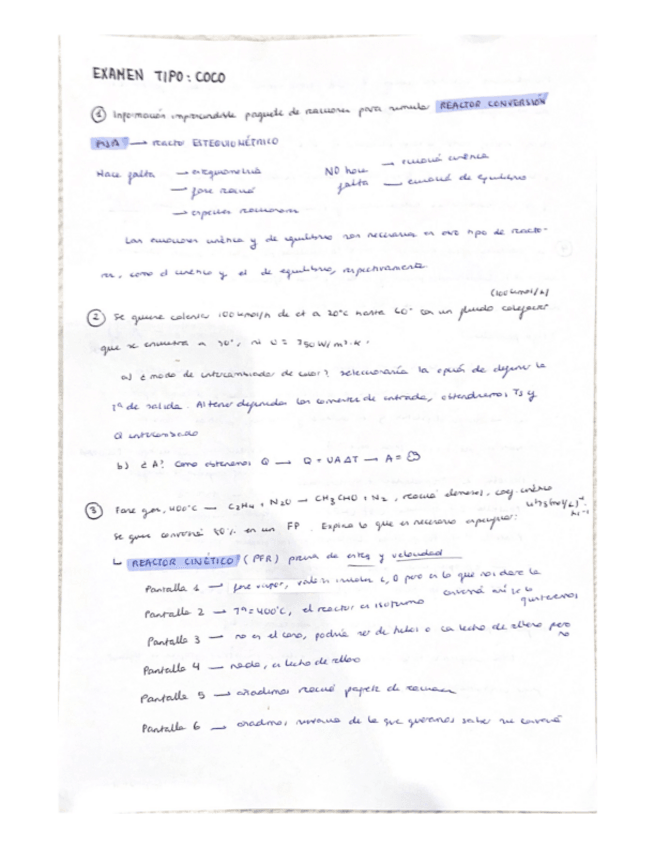 EXAMEN TIPO: COCO
① Información imprescindible paquete de reacciones para simular REACTOR CONVERSIÓN
FIJA → reactor ESTEQUIOMÉTRICO
Hace falta → estequiometría NO hace → ecuación cinética
→ fase reacción falta → ecuación de equilibrio
→ especies reaccionan
Las ecuaciones cinética y de equilibrio son necesarias en otro tipo de reacto-
res, como el cinético y el de equilibrio, respectivamente
(100 kmol/h)
② Se quiere calentar 100 kmol/h de et a 20°C hasta 60° con un fluido calefactor
que se encuentra a 90°, si U = 750 W/m²·K.
a) ¿modo de intercambiador de calor? seleccionaría la opción de definir la
Tª de salida. Al tener definidas las corrientes de entrada, obtendremos Ts y
Q intercambiado
b) ¿A? Como obtenemos Q → Q = UAΔT → A =
③ Fase gas, 400°C → C2H4 + N2O → CH3CHO + N2, reacción elemental, coef. cinético
se quiere conversión 80% en un FP. Explica lo que es necesario especificar:
↳ REACTOR CINÉTICO (PFR) precisa de esteq y velocidad
Pantalla 1 → fase vapor, valor L, D pero es lo que nos dará la
conversión así se lo
Pantalla 2 → Tª=400°C, el reactor es isotermo
Pantalla 3 → no es el caso, podría ser de tubos o con lecho de relleno pero
no
Pantalla 4 → nada, es lecho de relleno
Pantalla 5 → añadimos reacción paquete de reacciones
Pantalla 6 → añadimos de la que queramos saber su conversión